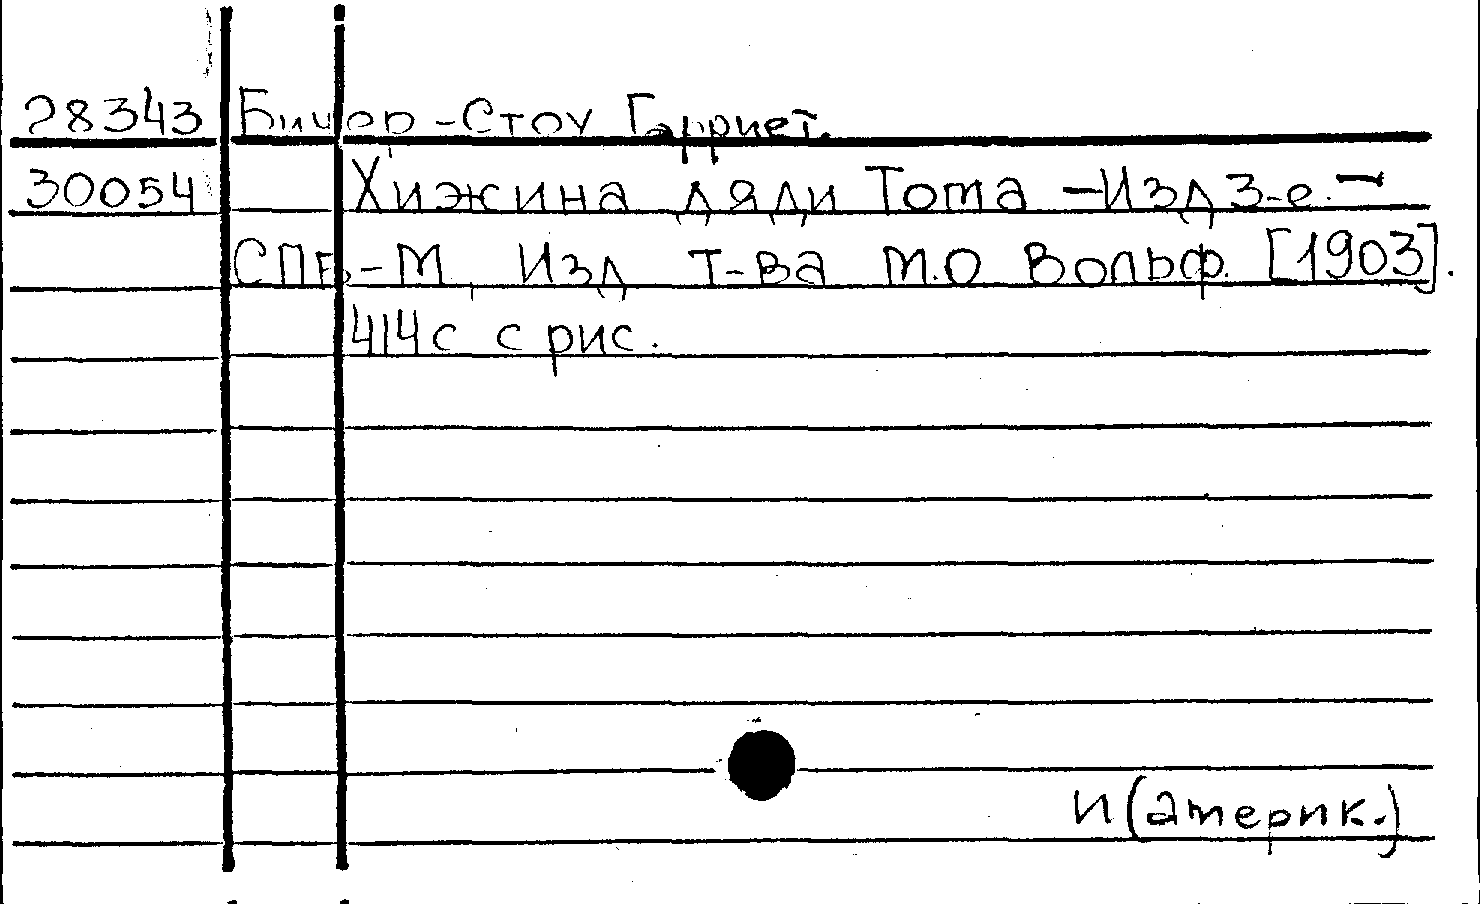 28343 Бичер-Стоу Гарриет.
30054 Хижина дяди Тома - Изд 3-е. -
СПб-М, Изд т-ва М.О Вольф. [1903].
414с с рис.
И(америк.)